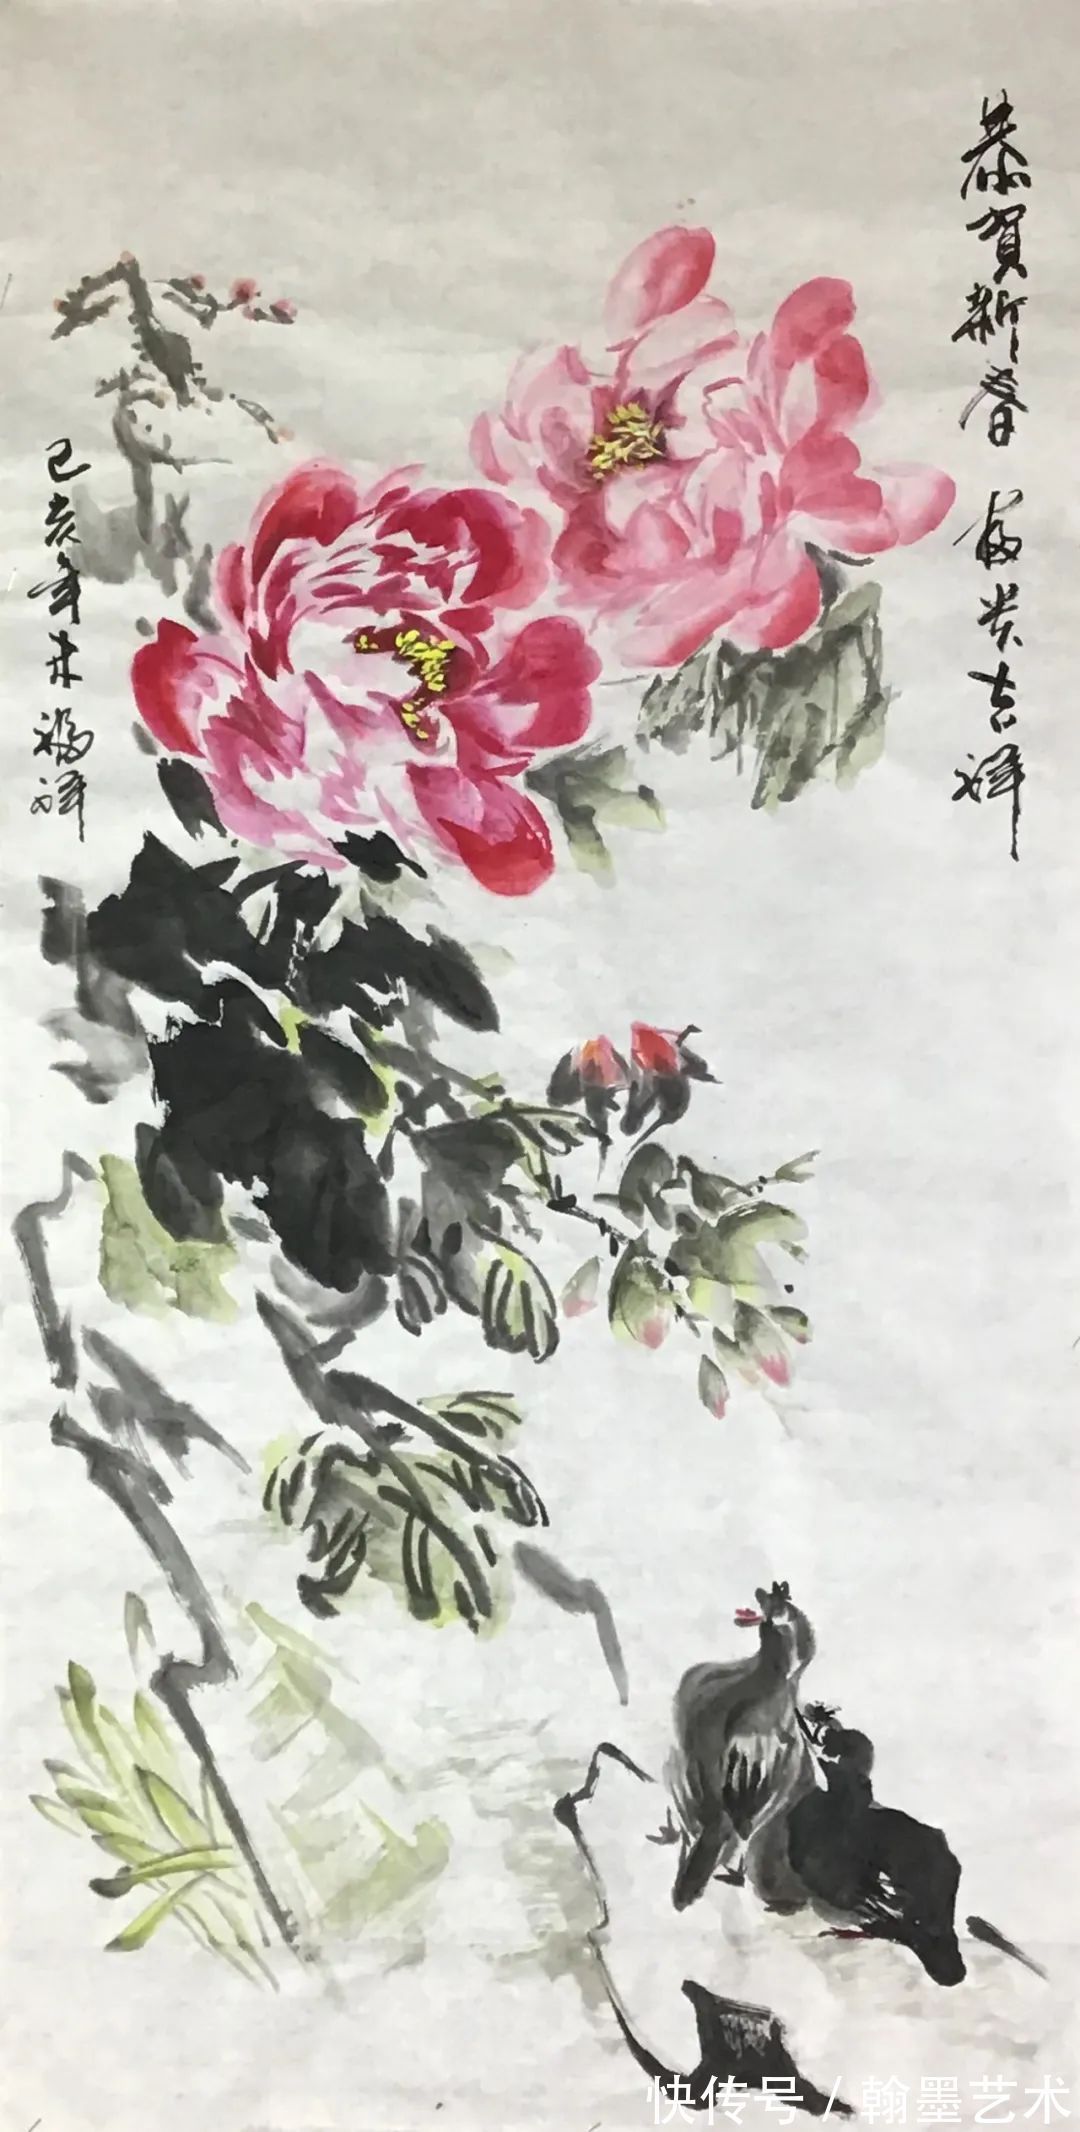 恭賀新春 富贵吉祥
己亥年朱福祥
快传号 / 翰墨艺术